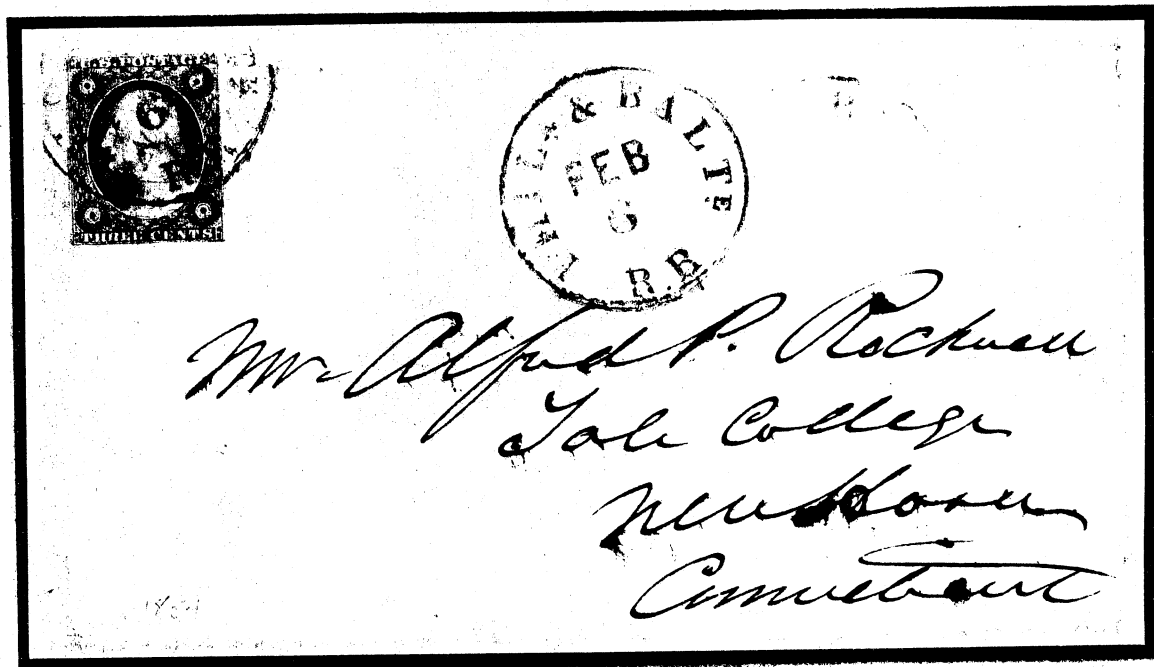 U.S. POSTAGE
THREE CENTS
PHILA & BALTE
R.R
FEB
6
Mr. Alfred P. Rockwell
Yale College
New Haven
Connecticut